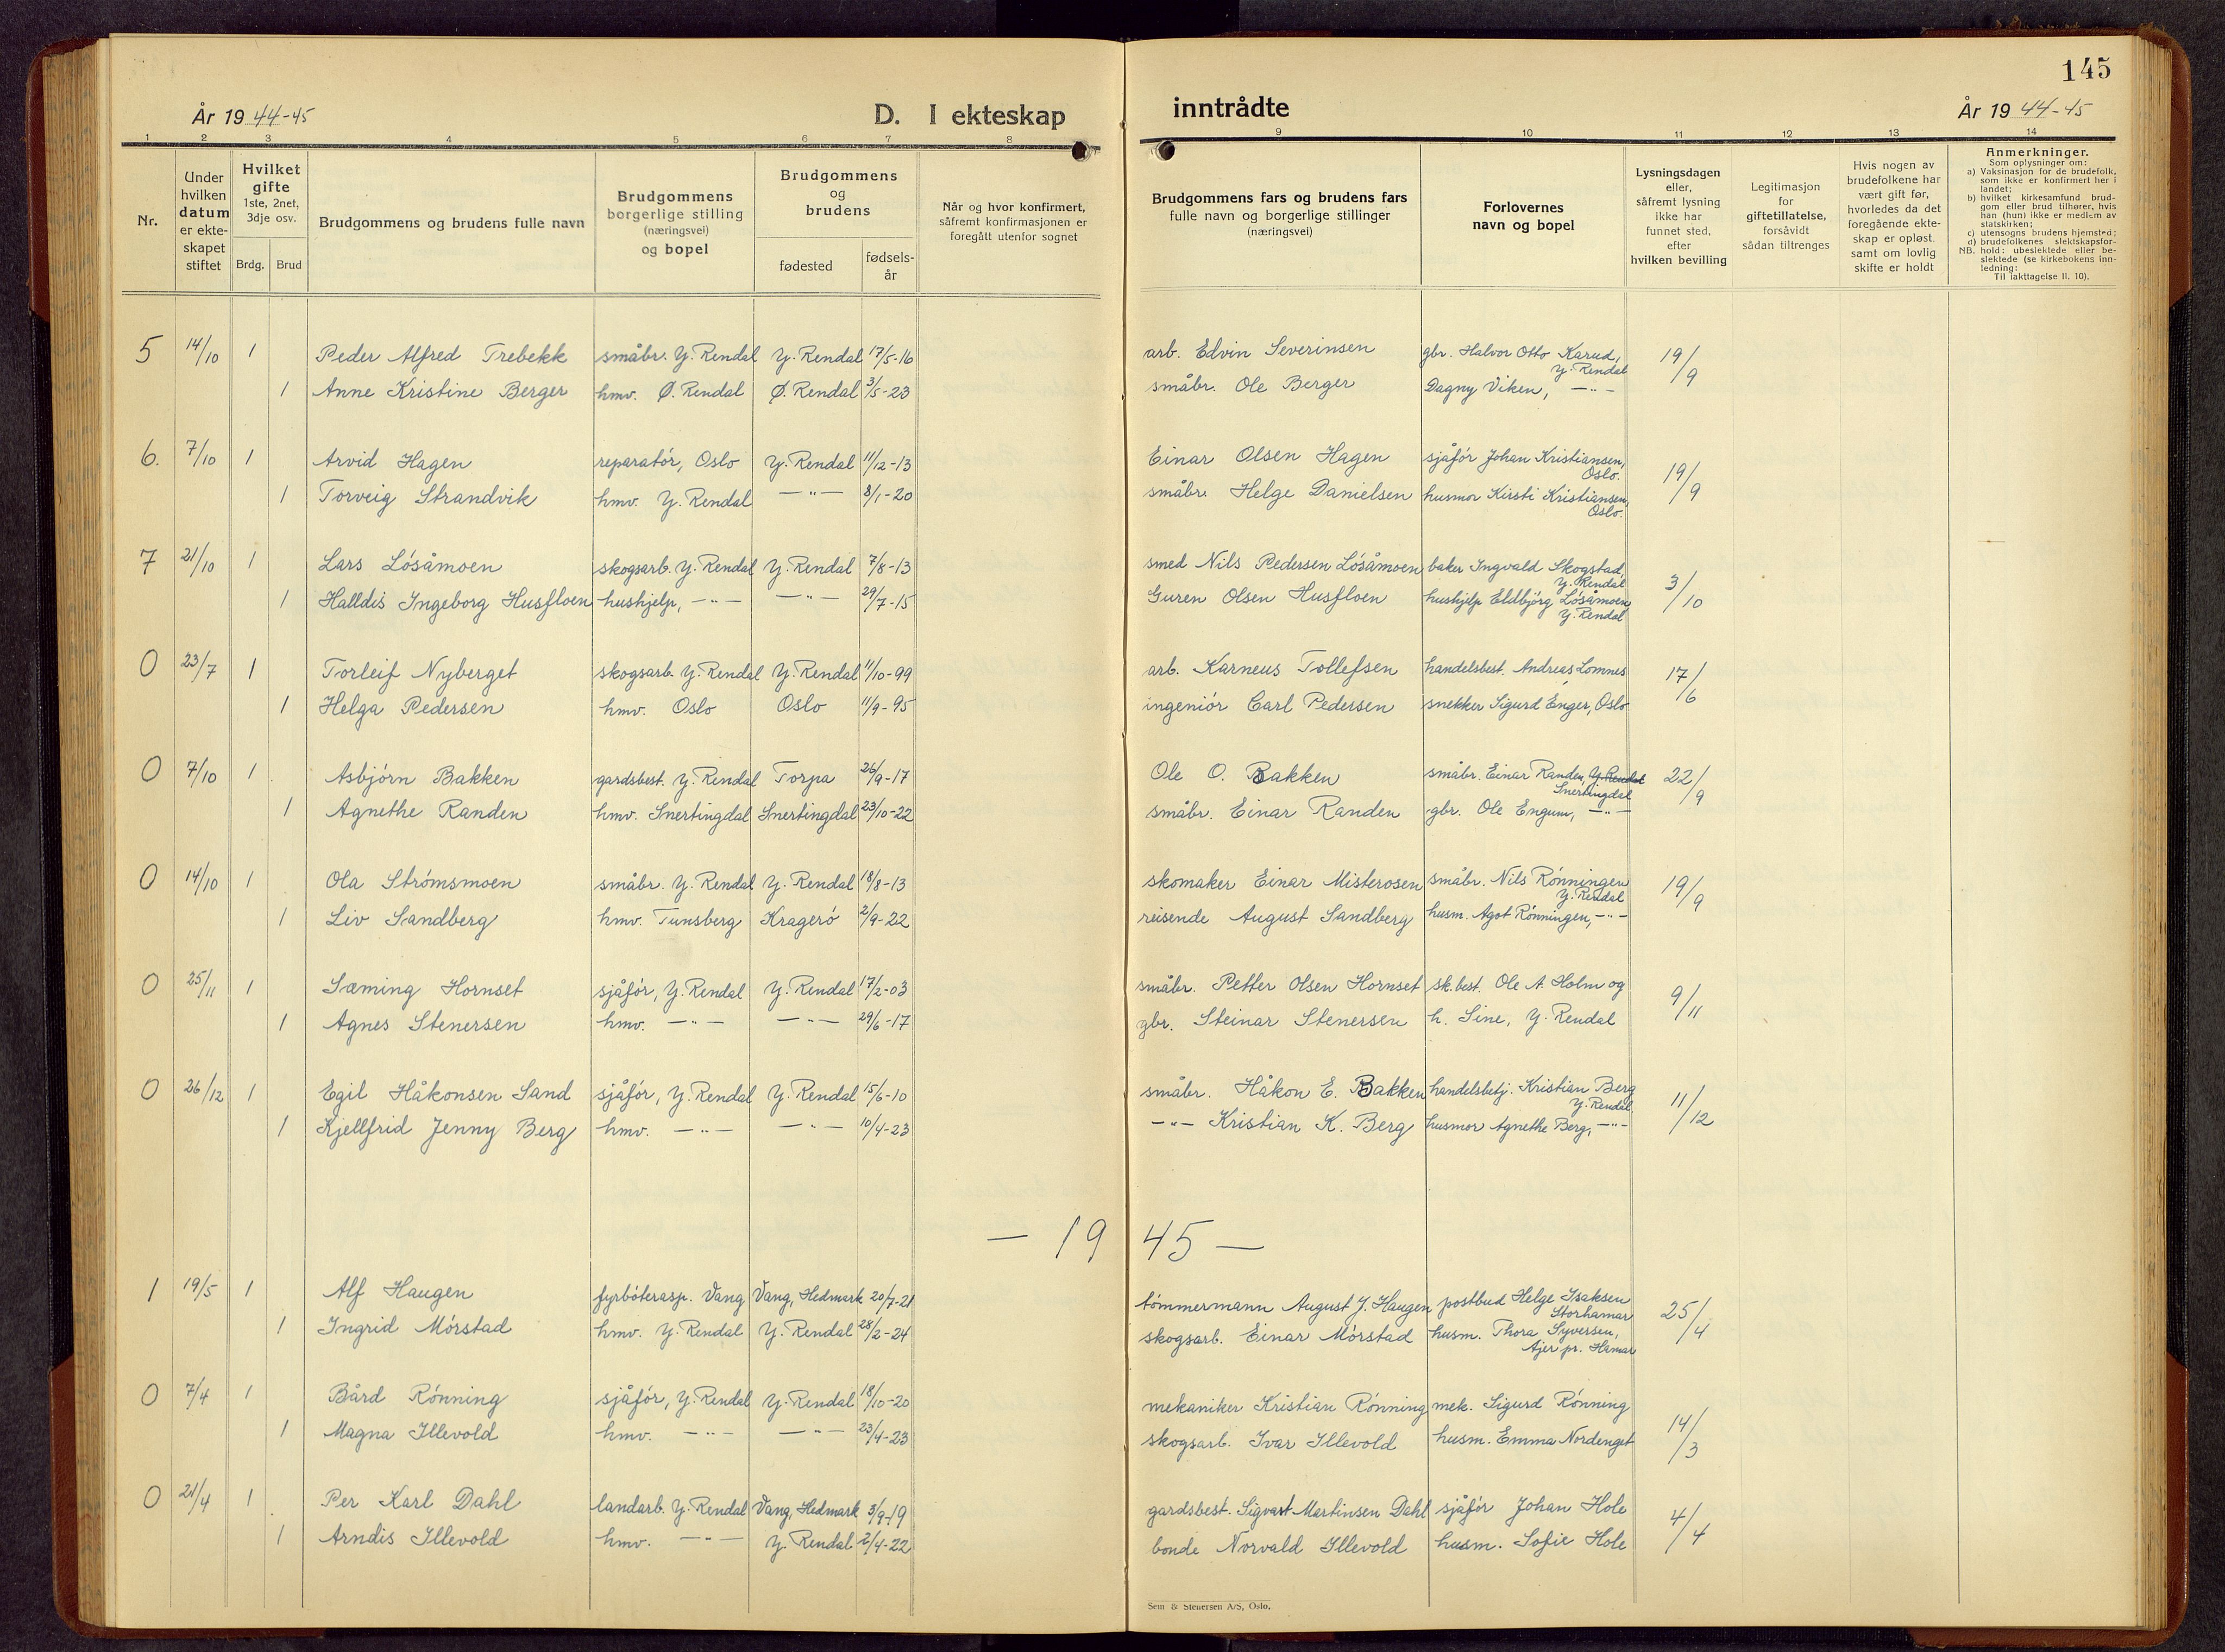 145
År 19 44-45
D. I ekteskap
inntrådte
År 19 44-45
1 2 3 4 5 6 7 8 9 10 11 12 13 14
Nr.
Under hvilken datum er ekteskapet stiftet
Hvilket gifte 1ste, 2net, 3dje osv.
Brdg. Brud
Brudgommens og brudens fulle navn
Brudgommens borgerlige stilling (næringsvei) og bopel
Brudgommens og brudens
fødested
fødselsår
Når og hvor konfirmert, såfremt konfirmasjonen er foregått utenfor sognet
Brudgommens fars og brudens fars fulle navn og borgerlige stillinger (næringsvei)
Forlovernes navn og bopel
Lysningsdagen eller, såfremt lysning ikke har funnet sted, efter hvilken bevilling
Legitimasjon for giftetillatelse, forsåvidt sådan tiltrenges
Hvis nogen av brudefolkene har vært gift før, hvorledes da det foregående ekteskap er opløst. samt om lovlig skifte er holdt
Anmerkninger.
Som oplysninger om:
a) Vaksinasjon for de brudefolk, som ikke er konfirmert her i landet;
b) hvilket kirkesamfund brudgom eller brud tilhører, hvis han (hun) ikke er medlem av statskirken;
c) utensogns brudens hjemsted;
d) brudefolkenes slektskapsforhold: ubeslektede eller beslektede (se kirkebokens innledning:
NB.
Til iakttagelse II. 10).
5 14/10 1 Peder Alfred Trebekk småbr. Y. Rendal Y. Rendal 17/5-16 arb. Edvin Severinsen gbr. Halvor Otto Karud, Y. Rendal 19/9
1 Anne Kristine Berger hmv. Ø. Rendal Ø. Rendal 3/5-23 småbr. Ole Berger Dagny Viken, —"—
6. 7/10 1 Arvid Hagen reparatór, Oslo Y. Rendal 11/12-13 Einar Olsen Hagen sjåfór Johan Kristiansen, Oslo. 19/9
1 Torveig Strandvik hmv. Y. Rendal —"— 8/1-20 småbr. Helge Danielsen husmor Kirsti Kristiansen, Oslo.
7 21/10 1 Lars Lósåmoen skogsarb. Y. Rendal Y. Rendal 7/8-13 smed Nils Pedersen Lósåmoen baker Ingvald Skogstad, Y. Rendal 3/10
1 Halldis Ingeborg Husfloen hushjelp, —"— —"— 29/7-15 Guren Olsen Husfloen hushjelp Eldbjórg Lósåmoen, Y. Rendal
0 23/7 1 Torleif Nyberget skogsarb. Y. Rendal Y. Rendal 11/10-99 arb. Karneus Tollefsen handelsbest. Andreas Lomnes 17/6
1 Helga Pedersen hmv. Oslo Oslo 11/9-95 ingeniór Carl Pedersen snekker Sigurd Enger, Oslo
0 7/10 1 Asbjórn Bakken gardsbest. Y. Rendal Torpa 26/9-17 Ole O. Bakken småbr. Einar Randen, Y. Rendal Snertingdal 22/9
1 Agnethe Randen hmv. Snertingdal Snertingdal 23/10-22 småbr. Einar Randen gbr. Ole Engum, —"—
0 14/10 1 Ola Strómsmoen småbr. Y. Rendal Y. Rendal 18/8-13 skomaker Einar Misterosen småbr. Nils Rónningen Y. Rendal 19/9
1 Liv Sandberg hmv. Tunsberg Krageró 2/9-22 reisende August Sandberg husm. Agot Rónningen, —"—
0 25/11 1 Sæming Hornset sjåfór, Y. Rendal Y. Rendal 17/2-03 småbr. Petter Olsen Hornset sk.best. Ole A. Holm og 9/11
1 Agnes Stenersen hmv. —"— —"— 29/6-17 gbr. Steinar Stenersen h. Sine, Y. Rendal
0 26/12 1 Egil Håkonsen Sand sjåfór, Y. Rendal Y. Rendal 15/6-10 småbr. Håkon E. Bakken handelsbetj. Kristian Berg Y. Rendal. 11/12
1 Kjellfrid Jenny Berg hmv. —"— —"— 10/4-23 —"— Kristian K. Berg husmor Agnethe Berg, —"—
— 19 45 —
1 19/5 1 Alf Haugen fyrbóterasp. Vang Vang, Hedmark 20/7-21 tómmermann August J. Haugen postbud Helge Isaksen Storhamar 25/4
1 Ingrid Mórstad hmv. Y. Rendal Y. Rendal 28/2-24 skogsarb. Einar Mórstad husm. Thora Syversen, Ajer pr. Hamar
0 7/4 1 Bård Rónning sjåfór, Y. Rendal Y. Rendal 18/10-20 mekaniker Kristian Rónning mek. Sigurd Rónning 14/3
1 Magna Illevold hmv. —"— —"— 23/4-23 skogsarb. Ivar Illevold husm. Emma Nordenget
0 21/4 1 Per Karl Dahl landarb. Y. Rendal Vang, Hedmark 3/9-19 gardsbest. Sigvart Martinsen Dahl sjåfór Johan Hole 4/4
1 Arndis Illevold hmv. —"— Y. Rendal 2/4-22 bonde Norvald Illevold husm. Sofie Hole
Sem & Stenersen A/S, Oslo.